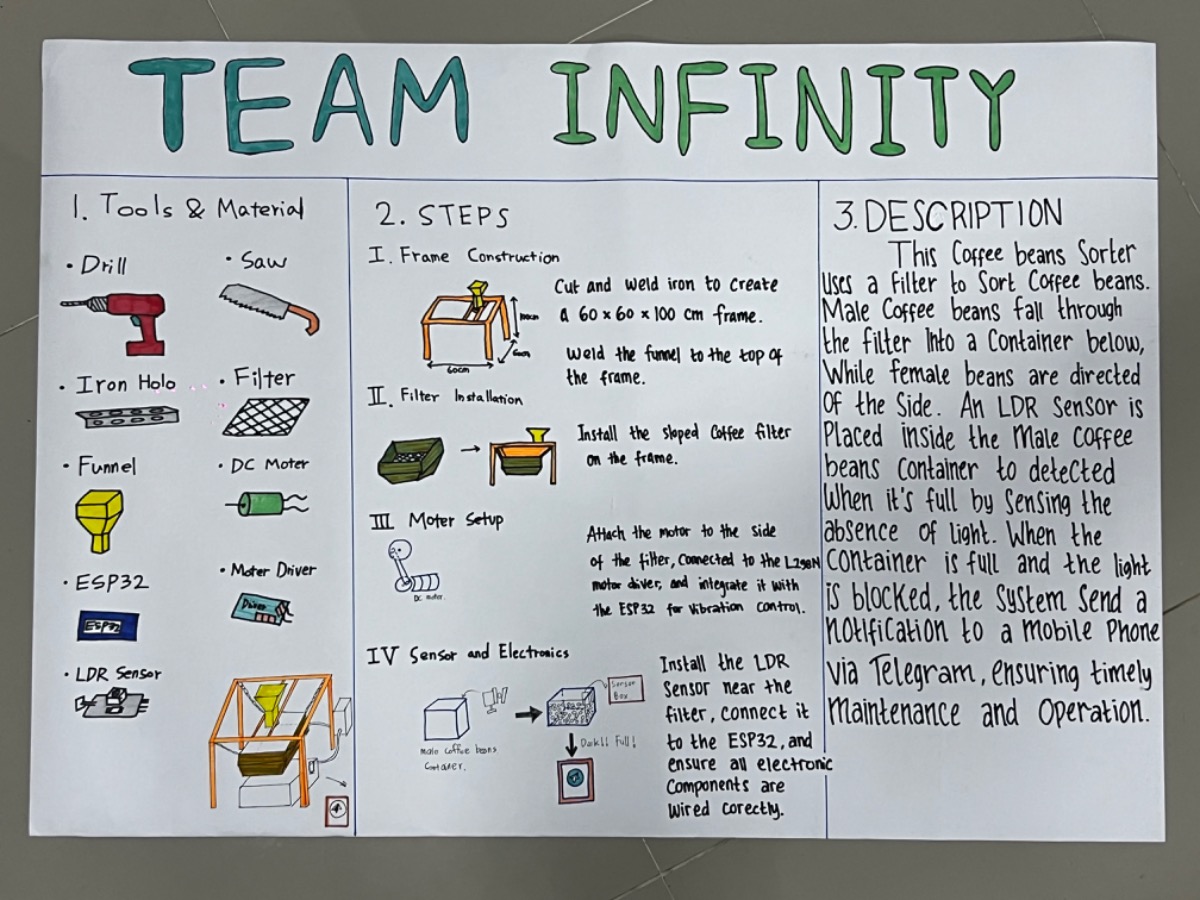 TEAM INFINITY
1. Tools & Material
• Drill
• Saw
• Iron Holo
• Filter
• Funnel
• DC Moter
• ESP32
• Moter Driver
Driver
ESP32
• LDR Sensor
2. STEPS
I. Frame Construction
100cm
60cm
60cm
Cut and weld iron to create
a 60 x 60 x 100 cm frame.
Weld the funnel to the top of
the frame.
II. Filter Installation
Install the sloped Coffee filter
on the frame.
III Moter Setup
DC moter.
Attach the motor to the side
of the filter, Connected to the L298N
motor diver, and integrate it with
the ESP32 for Vibration control.
IV Sensor and Electronics
male coffee beans
Container.
Sensor
Box
Dark!! Full!
Install the LDR
Sensor near the
filter, connect it
to the ESP32, and
ensure all electronic
Components are
Wired corectly.
3. DESCRIPTION
This Coffee beans Sorter
Uses a Filter to Sort Coffee beans.
Male Coffee beans fall through
the filter Into a Container below,
While female beans are directed
Of the Side. An LDR Sensor is
Placed inside the Male Coffee
beans Container to detected
When it's full by Sensing the
absence of light. When the
Container is full and the light
is blocked, the System Send a
notification to a Mobile Phone
Via Telegram, ensuring timely
Maintenance and Operation.